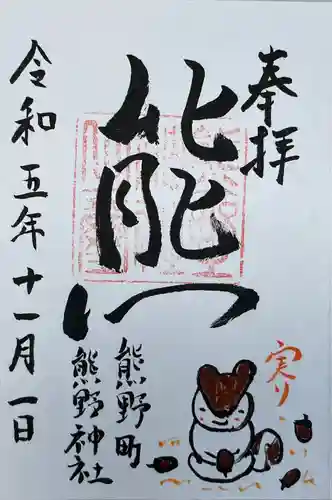 奉拝
熊
熊野町
熊野神社
令和五年十一月一日
実り